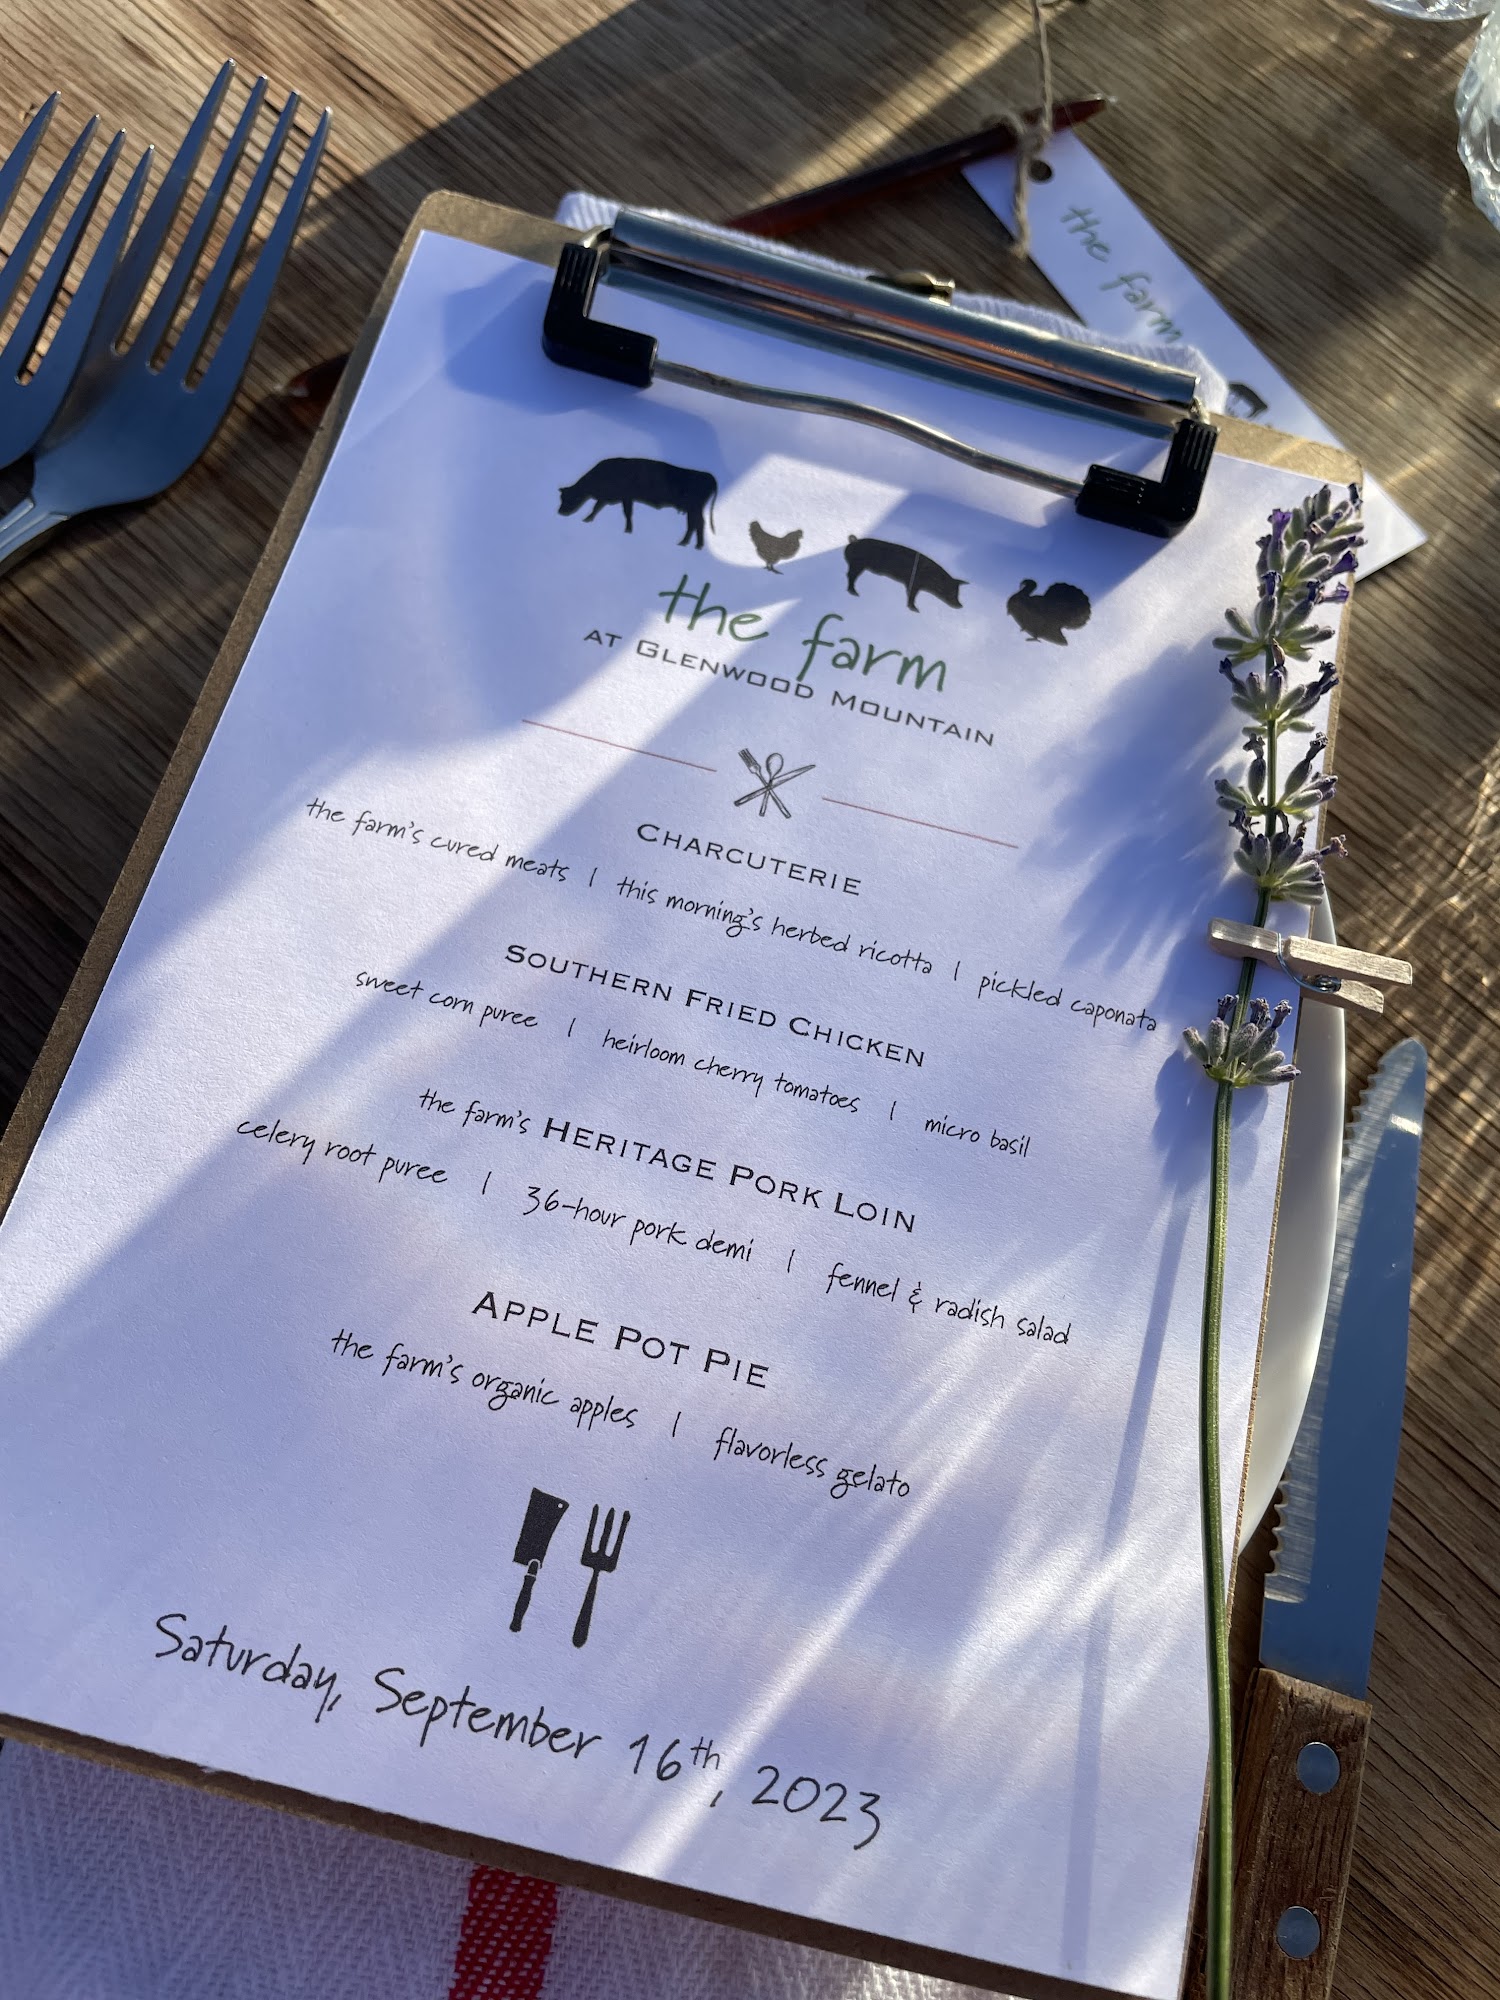 the farm
the farm
AT GLENWOOD MOUNTAIN
CHARCUTERIE
the farm's cured meats | this morning's herbed ricotta | pickled caponata
SOUTHERN FRIED CHICKEN
sweet corn puree | heirloom cherry tomatoes | micro basil
the farm's HERITAGE PORK LOIN
celery root puree | 36-hour pork demi | fennel & radish salad
APPLE POT PIE
the farm's organic apples | flavorless gelato
Saturday, September 16th, 2023